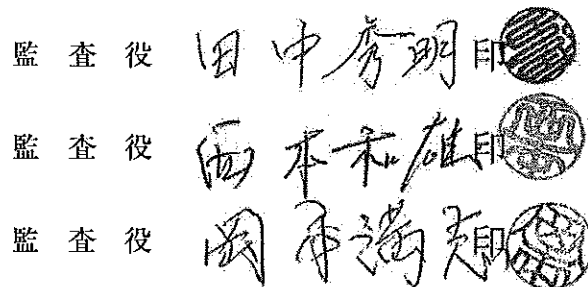 監査役 田中秀明 印
監査役 西本和雄 印
監査役 岡 満 印